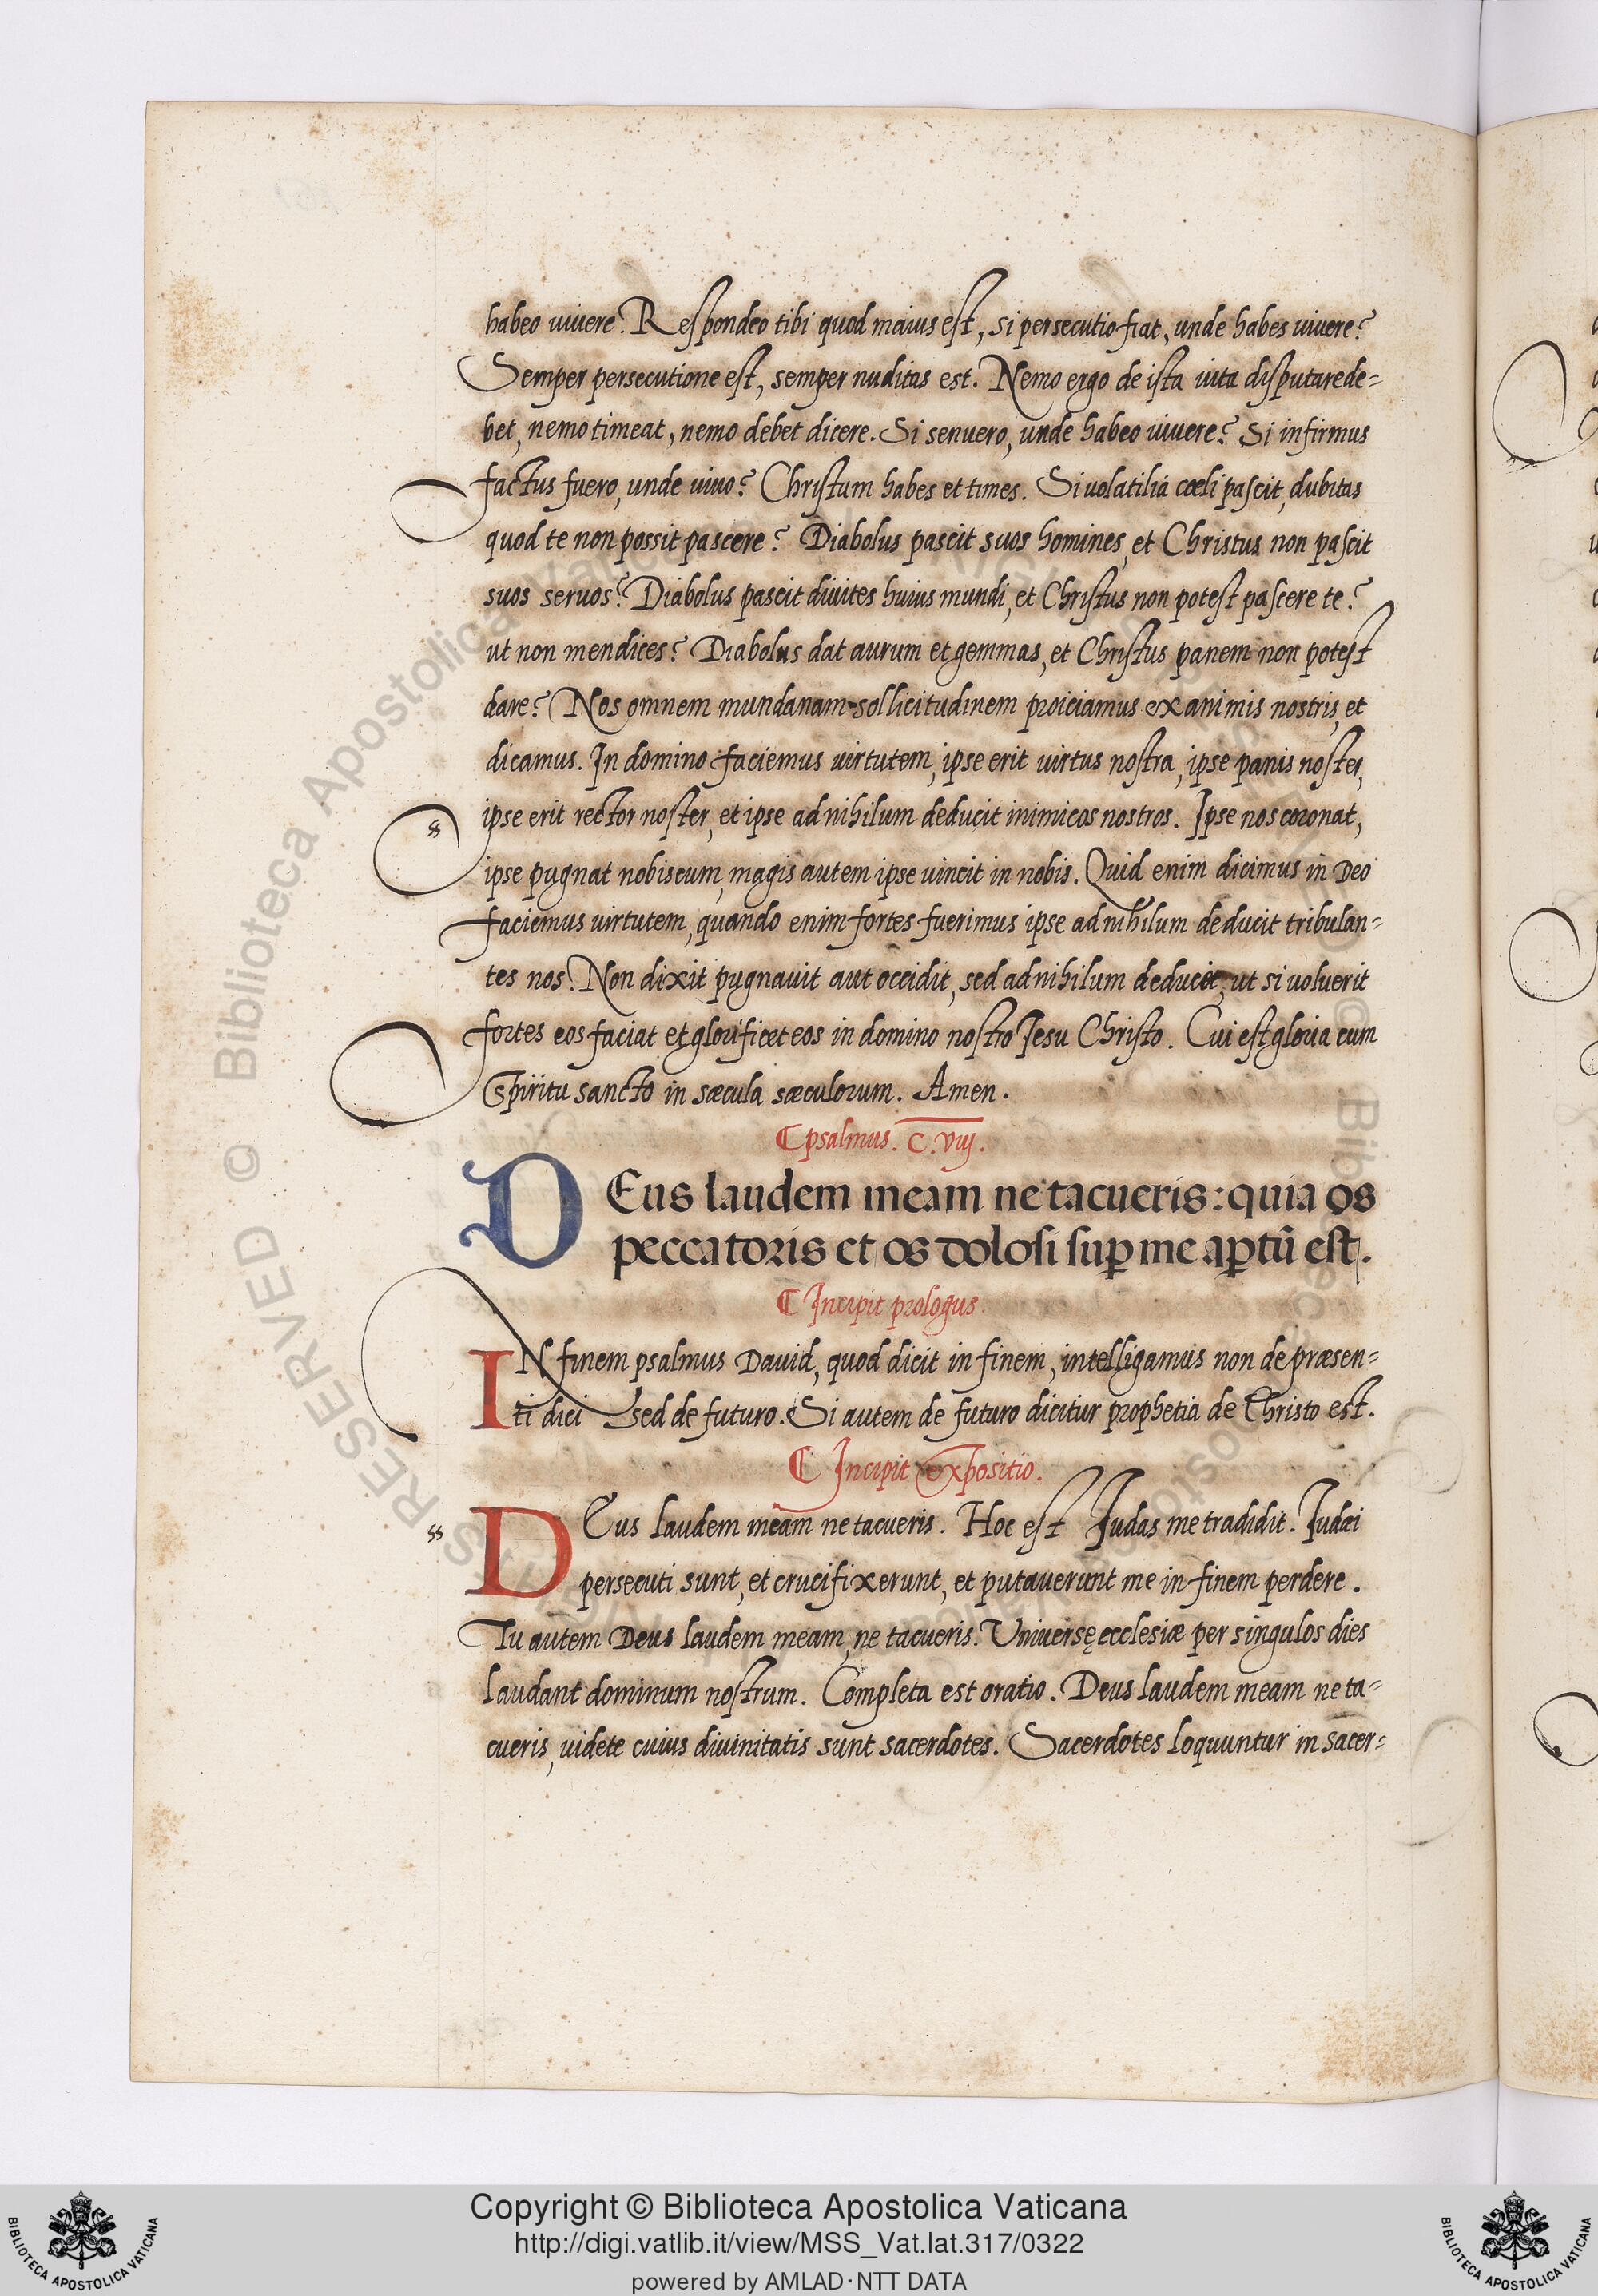 habeo uiuere? Respondeo tibi quod maius est, si persecutio fiat, unde habes uiuere?
Semper persecutione est, semper nuditas est. Nemo ergo de ista uita disputare de=
bet, nemo timeat, nemo debet dicere. Si senuero, unde habeo uiuere? Si infirmus
factus fuero, unde uiuo? Christum habes et times. Si uolatilia cœli pascit, dubitas
quod te non possit pascere? Diabolus pascit suos homines, et Christus non pascit
suos seruos? Diabolus pascit diuites huius mundi, et Christus non potest pascere te?
ut non mendices? Diabolus dat aurum et gemmas, et Christus panem non potest
dare? Nos omnem mundanam sollicitudinem proiciamus ex animis nostris, et
dicamus. In domino faciemus uirtutem, ipse erit uirtus nostra, ipse panis noster,
ipse erit rector noster, et ipse ad nihilum deducit inimicos nostros. Ipse nos coronat,
ipse pugnat nobiscum, magis autem ipse uincit in nobis. Quid enim dicimus in Deo
faciemus uirtutem, quando enim fortes fuerimus ipse ad nihilum deducit tribulan=
tes nos. Non dixit pugnauit aut occidit, sed ad nihilum deducit, ut si uoluerit
fortes eos faciat et glorificet eos in domino nostro Jesu Christo. Cui est gloria cum
Spiritu sancto in sæcula sæculorum. Amen.
¶ psalmus. C. viij.
DEus laudem meam ne tacueris: quia os
peccatoris et os dolosi suꝑ me aꝑtũ est.
¶ Incipit prologus
IN finem psalmus David, quod dicit in finem, intelligamus non de præsen=
ti dici sed de futuro. Si autem de futuro dicitur prophetia de Christo est.
¶ Incipit expositio.
DEus laudem meam ne tacueris. Hoc est Judas me tradidit. Judæi
persecuti sunt, et crucifixerunt, et putauerunt me in finem perdere.
Tu autem Deus laudem meam, ne tacueris. Universę ecclesiæ per singulos dies
laudant dominum nostrum. Completa est oratio. Deus laudem meam ne ta=
cueris, uidete cuius diuinitatis sunt sacerdotes. Sacerdotes loquuntur in sacer=
Copyright © Biblioteca Apostolica Vaticana
http://digi.vatlib.it/view/MSS_Vat.lat.317/0322
powered by AMLAD·NTT DATA
BIBLIOTECA APOSTOLICA VATICANA
BIBLIOTECA APOSTOLICA VATICANA